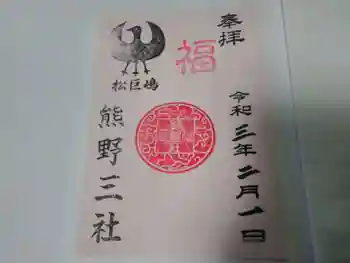 奉拝
令和三年二月一日
福
松巨嶋
熊野三社